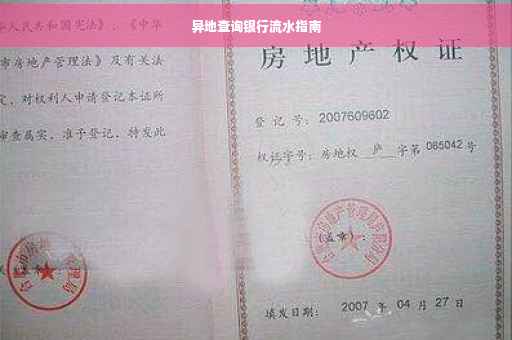 异地查询银行流水指南
人民共和国宪法》、《中华
市房地产管理法》及有关法
定，对权利人申请登记本证所
审查属实，准予登记，特发此
房地产权证
登记号：2007609602
权证字号：房地权 庐 字第 065042 号
(盖章)：
填发日期：2007 年 04 月 27 日